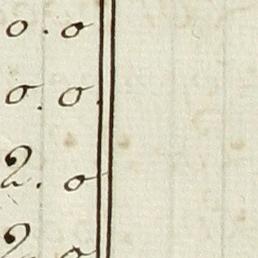 0.0
0.0
2.0
2.0